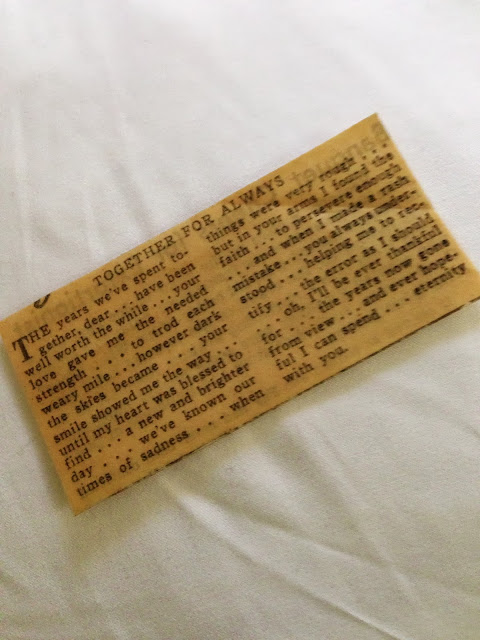 TOGETHER FOR ALWAYS
THE years we've spent to-
gether, dear . . . have been
well worth the while . . . your
love gave me the needed
strength . . . to trod each
weary mile . . . however dark
the skies became . . . your
smile showed me the way . . .
until my heart was blessed to
find . . . a new and brighter
day . . . we've known our
times of sadness . . . when
things were very rough . . .
but in your arms I found the
faith . . . to persevere enough
. . . and when I made a rash
mistake . . . you always under-
stood . . . helping me to rec-
tify . . . the error as I should
. . . oh, I'll be ever thankful
for . . . the years now gone
from view . . . and ever hope-
ful I can spend . . . eternity
with you.